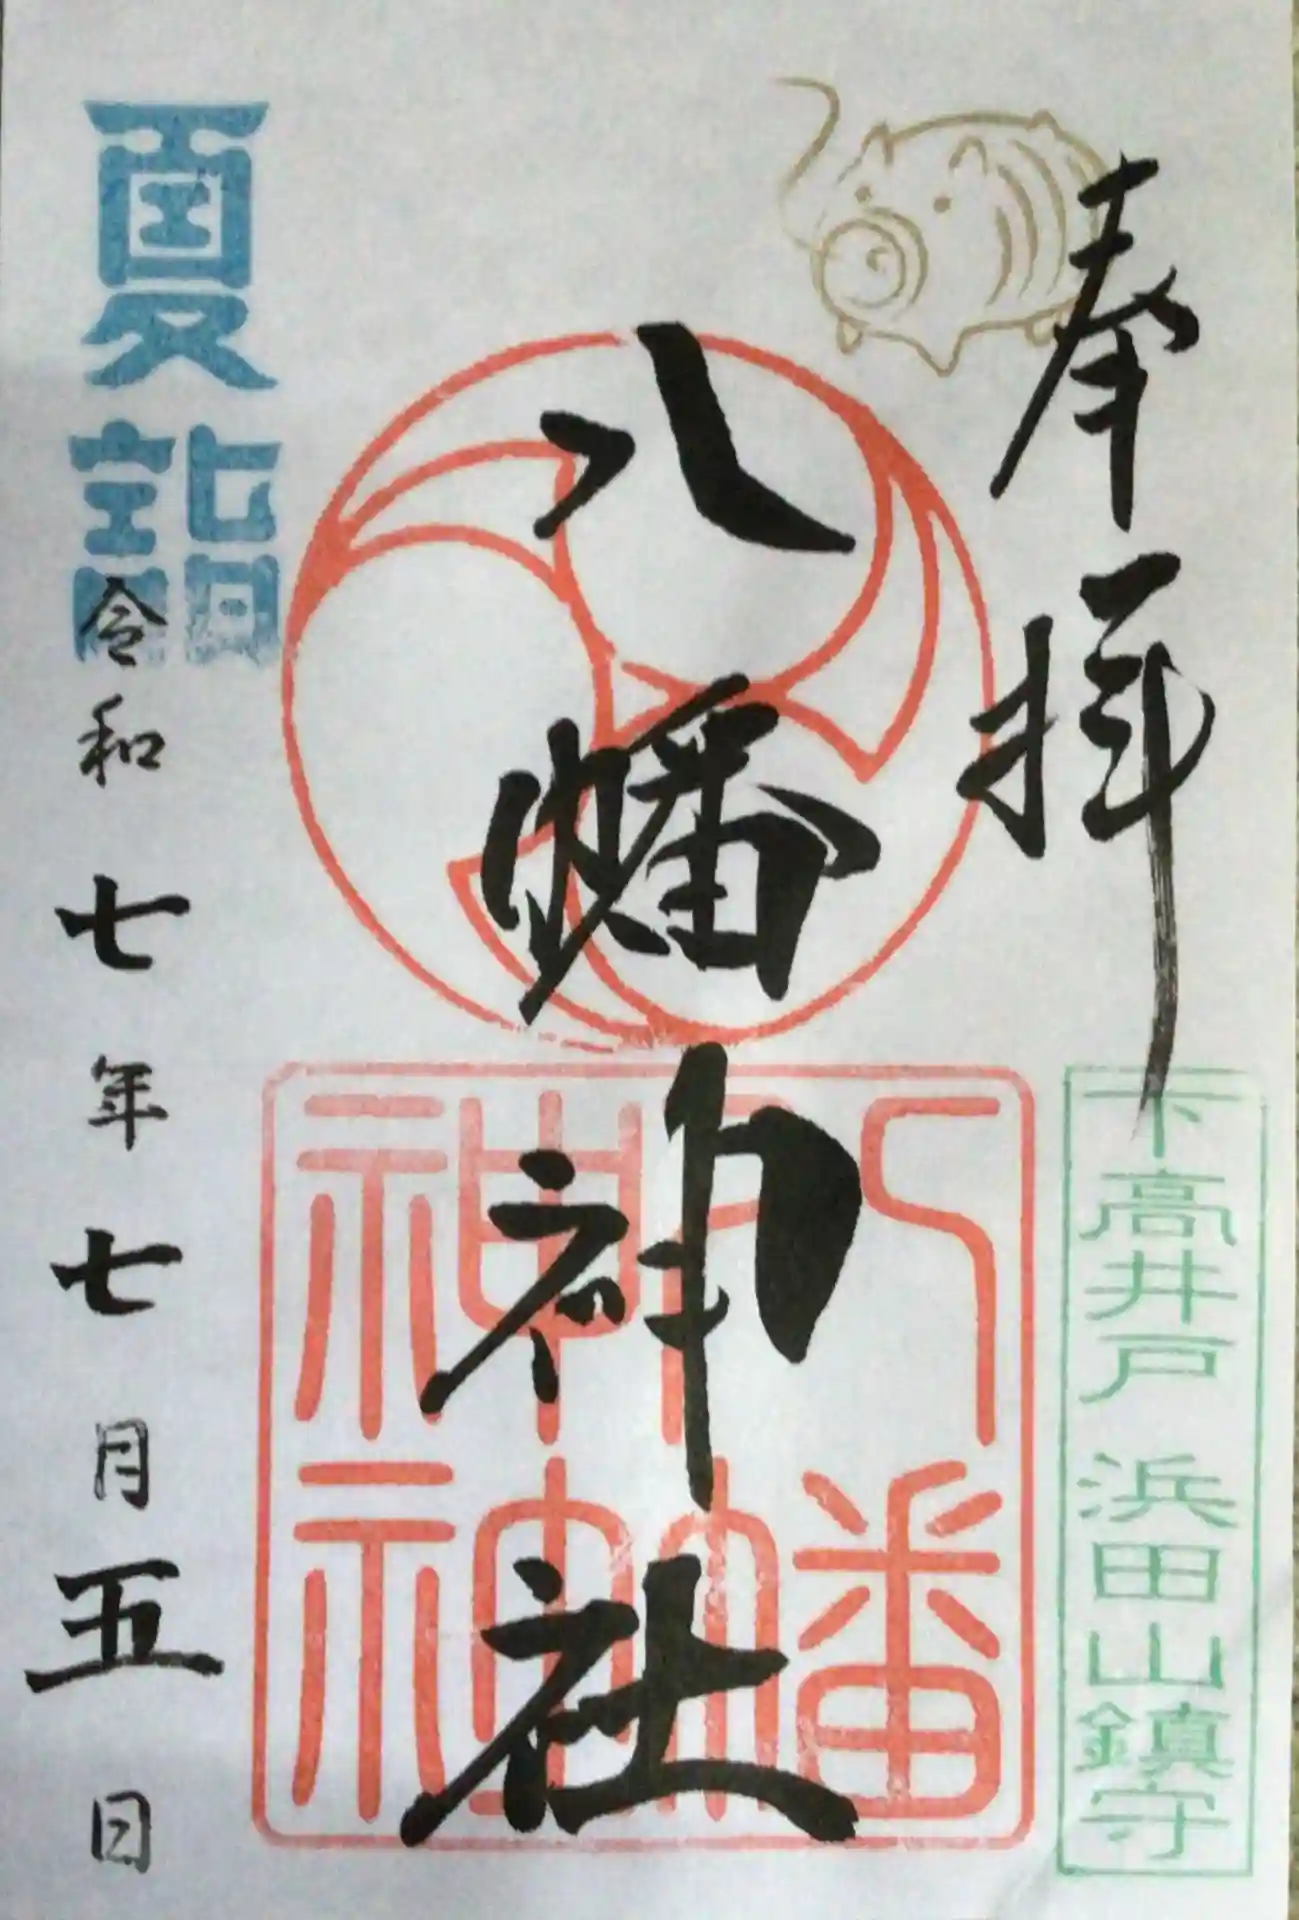 奉拝
下高井戸 浜田山鎮守
八幡神社
八幡
神
夏詣
令和七年七月五日